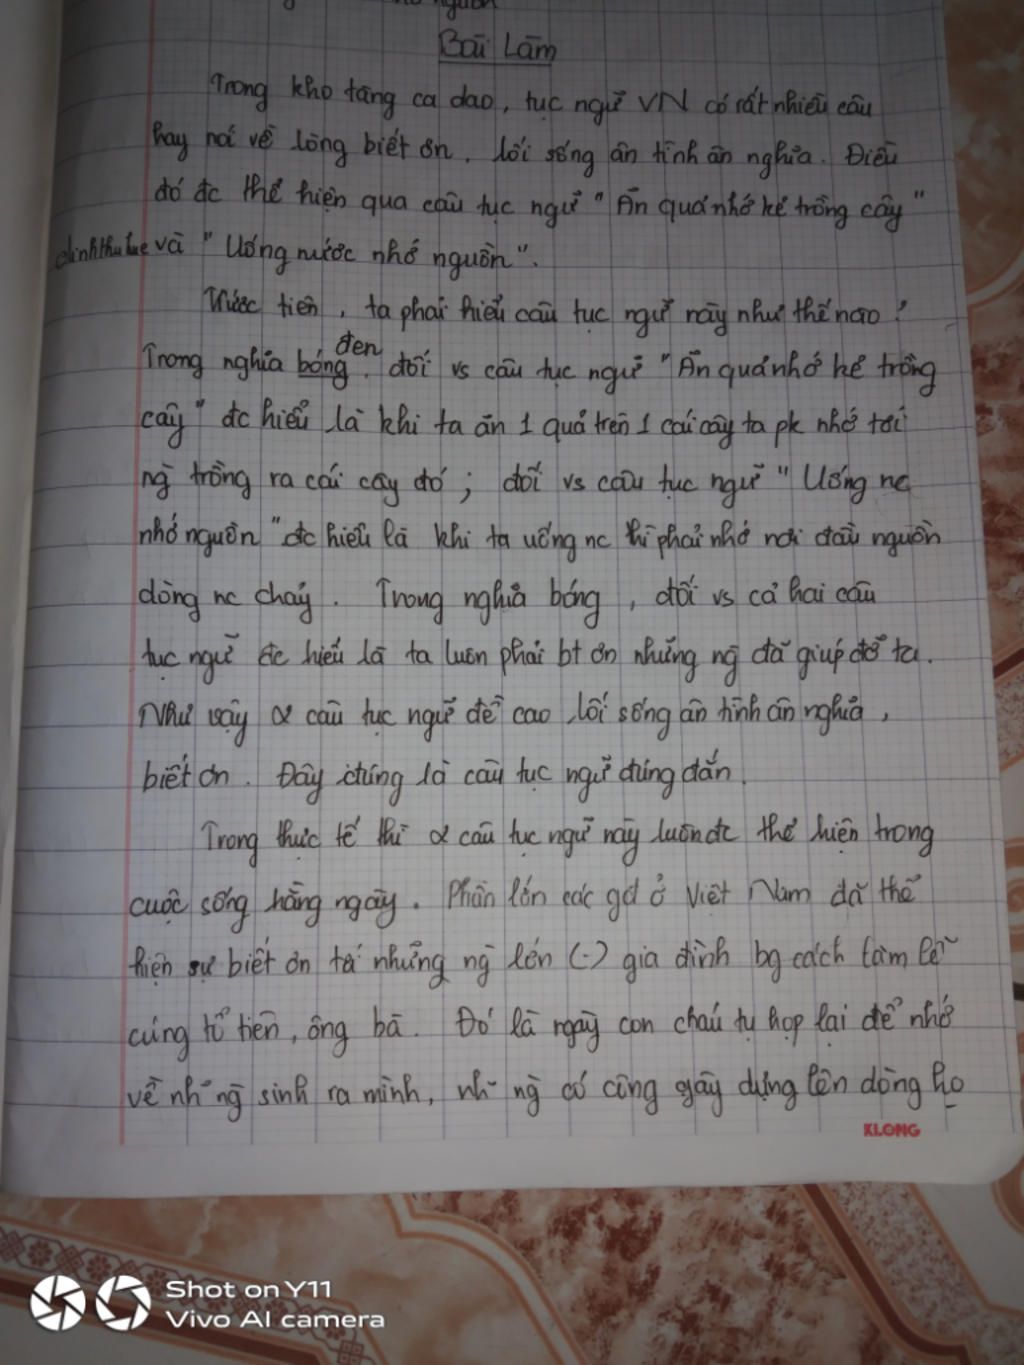 Bài Làm
Trong kho tàng ca dao, tục ngữ VN có rất nhiều câu
hay nói về lòng biết ơn, lối sống ân tình ân nghĩa. Điều
đó đc thể hiện qua câu tục ngữ "Ăn quả nhớ kẻ trồng cây"
và "Uống nước nhớ nguồn".
Trước tiên, ta phải hiểu câu tục ngữ này như thế nào?
đen
Trong nghĩa bóng, đối vs câu tục ngữ "Ăn quả nhớ kẻ trồng
cây" đc hiểu là khi ta ăn 1 quả trên 1 cái cây ta pk nhớ tới
ng` trồng ra cái cây đó; đối vs câu tục ngữ "Uống nc
nhớ nguồn" đc hiểu là khi ta uống nc thì phải nhớ nơi đầu nguồn
dòng nc chảy. Trong nghĩa bóng, đối vs cả hai câu
tục ngữ đc hiểu là ta luôn phải bt ơn những ng~ đã giúp đỡ ta.
Như vậy 2 câu tục ngữ đề cao lối sống ân tình ân nghĩa,
biết ơn. Đây chúng là câu tục ngữ đúng đắn.
Trong thực tế thì 2 câu tục ngữ này luôn đc thể hiện trong
cuộc sống hằng ngày. Phần lớn các gđ ở Việt Nam đã thể
hiện sự biết ơn tới những ng` lớn (-) gia đình bg cách làm lễ
cúng tổ tiên, ông bà. Đó là ngày con cháu tụ họp lại để nhớ
về nh~ ng` sinh ra mình, nh~ ng` có công gây dựng lên dòng họ
KLONG
Shot on Y11
Vivo AI camera